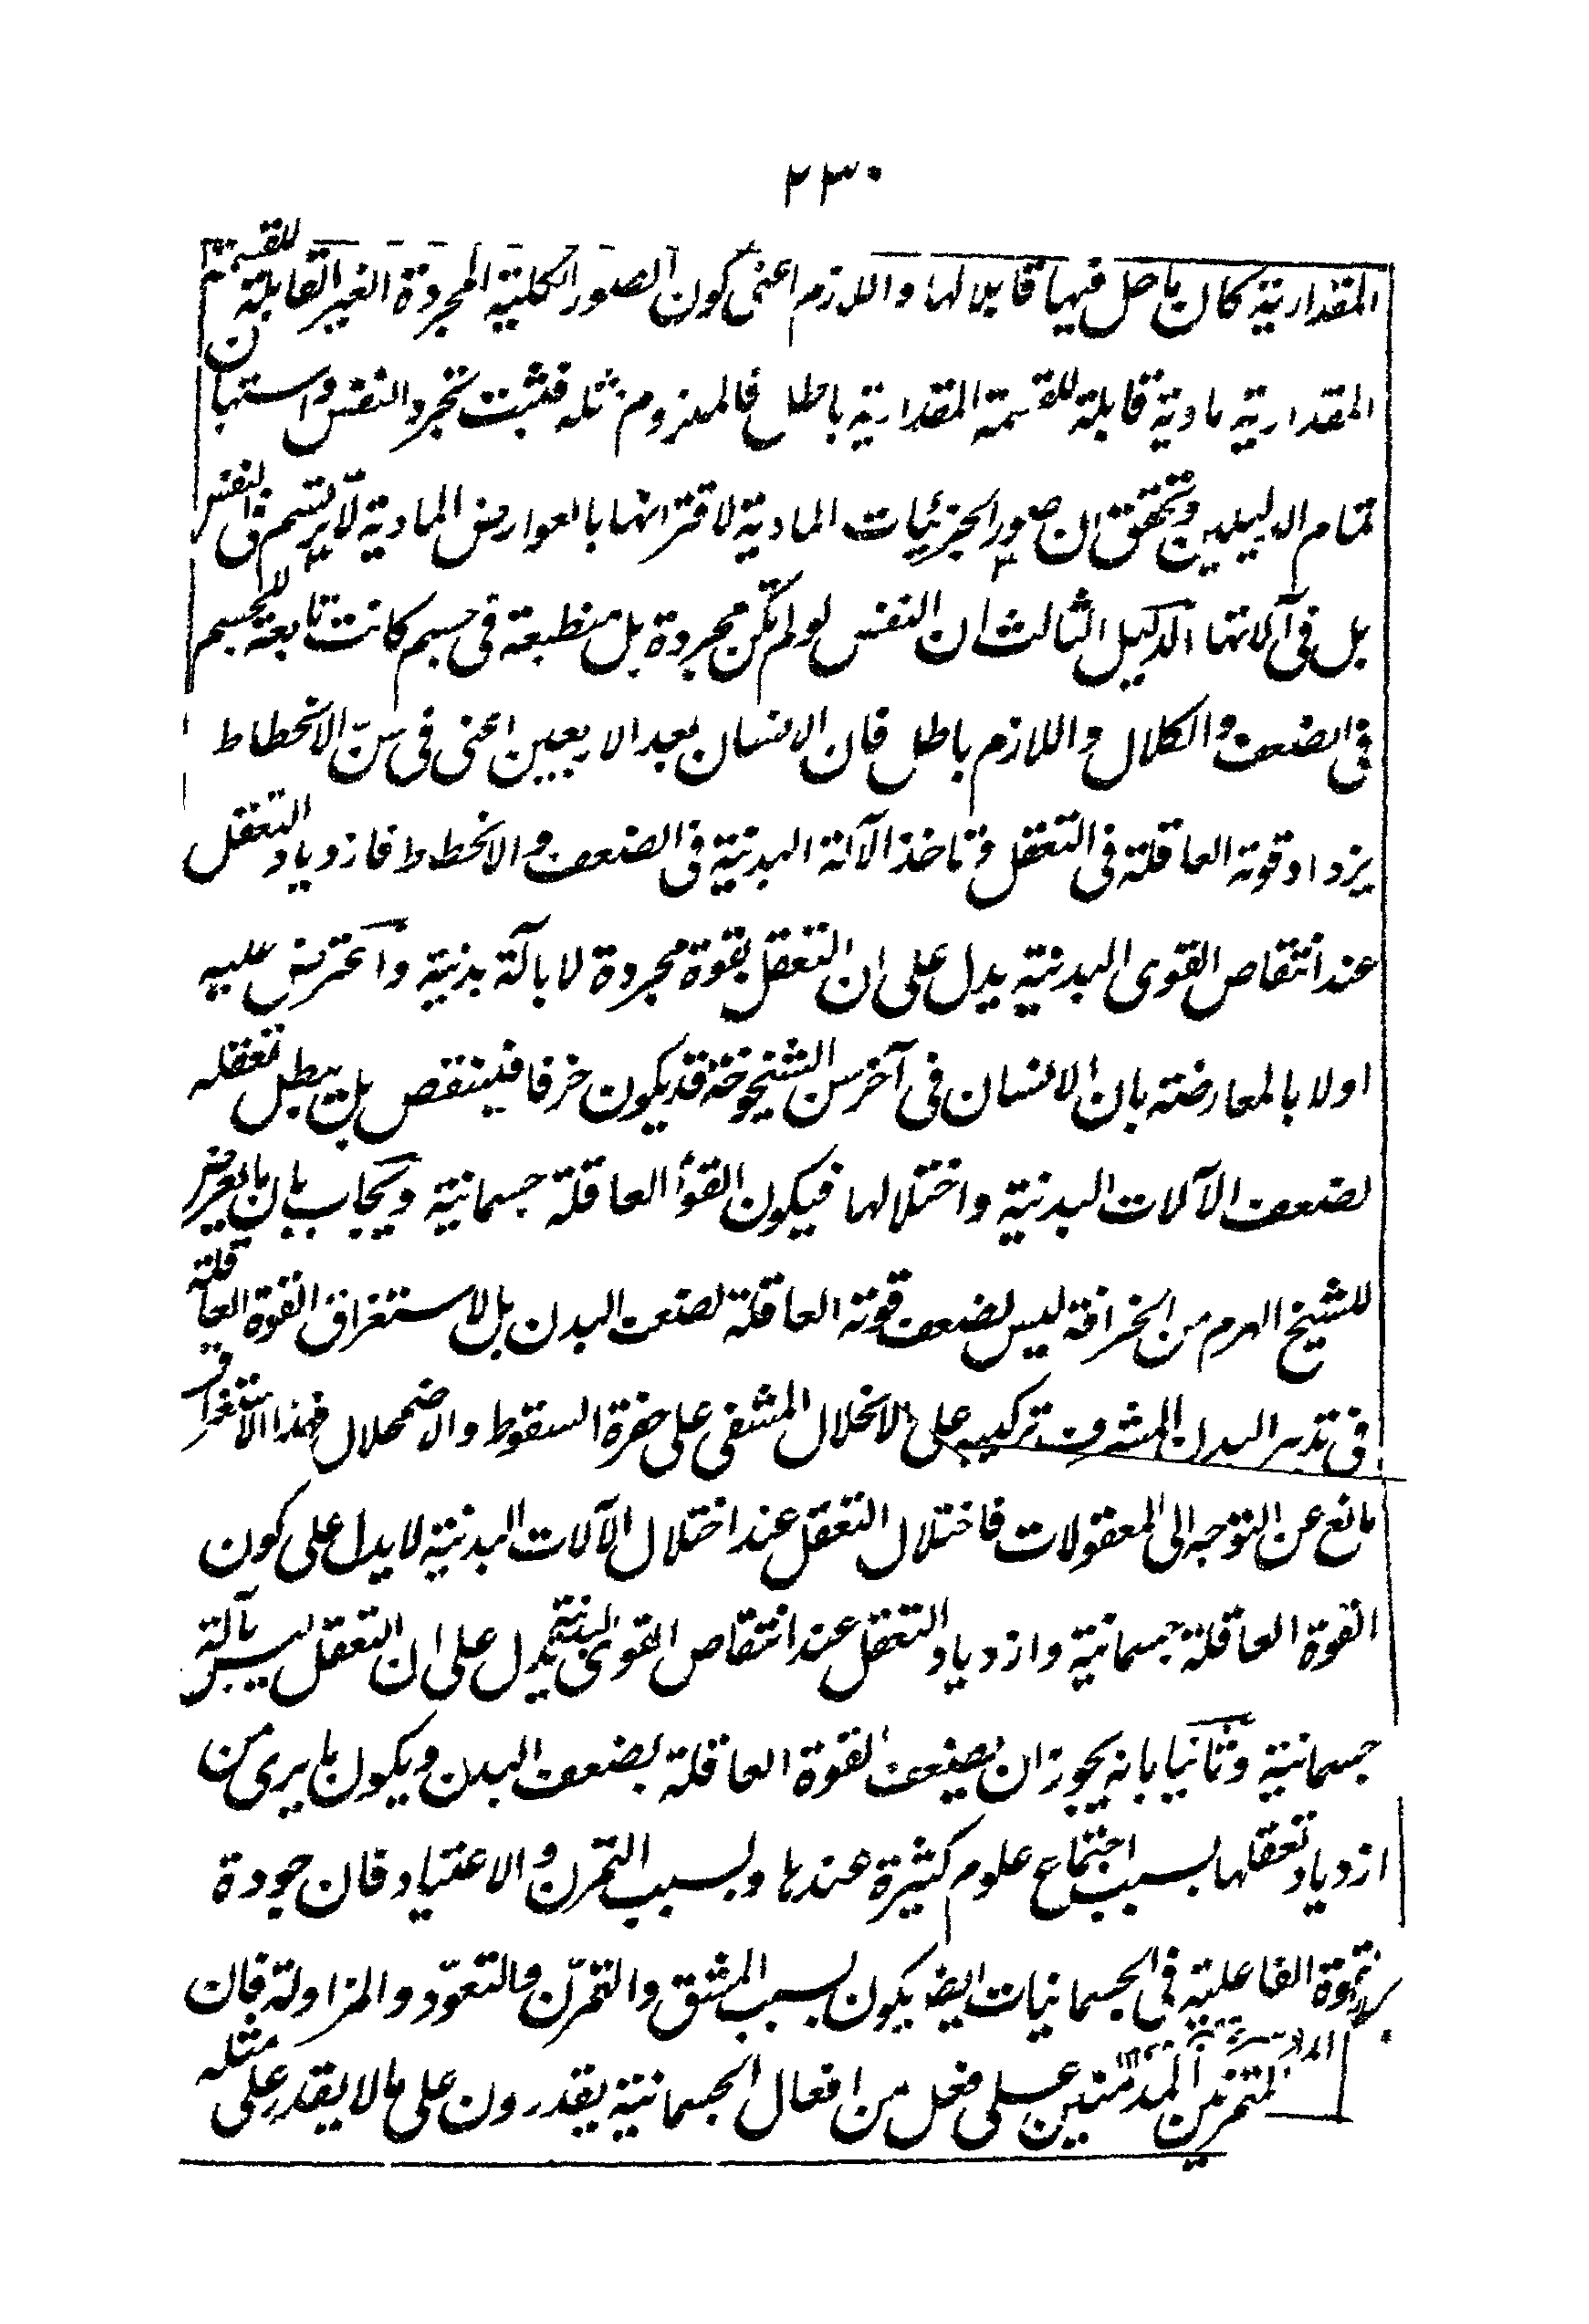 ٢٣٠
المقدارية كان ما حل فيها قابلا لها واللازم اعنى كون الصور الكلية المجردة الغير القابلة للقسمة
المقدارية مادية قابلة للقسمة المقدارية باطل فالملزوم مثله فثبت تجرد النفس واستبان
تمام الدليلين وتحقق ان صور الجزئيات المادية لاقترانها بالعوارض المادية لا يرتسم فى النفس
بل فى آلاتها الدليل الثالث ان النفس لو لم تكن مجردة بل منطبعة فى جسم كانت تابعة للجسم
فى الضعف والكلال واللازم باطل فان الانسان بعد الاربعين اعنى فى سن الانحطاط
يزداد قوته العاقلة فى التعقل وتاخذ الآلة البدنية فى الضعف والانحطاط فازدياد التعقل
عند انتقاص القوى البدنية يدل على ان التعقل بقوة مجردة لا بآلة بدنية واعترض عليه
اولا بالمعارضة بان الانسان فى آخر سن الشيخوخة قد يكون خرفا فينتقص بل يبطل تعقله
لضعف الآلات البدنية واختلالها فيكون القوة العاقلة جسمانية ويجاب بان ما يعرض
للشيخ الهرم من الخرافة ليس لضعف قوته العاقلة لضعف البدن بل لاستغراق القوة العاقلة
فى تدبير البدن المشرف تركيبه على الانحلال المشفى على حفرة السقوط والاضمحلال فهذا الاستغراق
مانع عن التوجه الى المعقولات فاختلال التعقل عند اختلال الآلات البدنية لا يدل على كون
القوة العاقلة جسمانية وازدياد التعقل عند انتقاص القوى البدنية يدل على ان التعقل ليس بآلة
جسمانية وثانيا بانه يجوز ان يضعف القوة العاقلة بضعف البدن ويكون ما يرى من
ازدياد تعقلها بسبب اجتماع علوم كثيرة عندها وبسبب التمرن والاعتياد فان جودة
القوة الفاعلية فى الجسمانيات ايضا يكون بسبب المشق والتمرن والتعود والمزاولة فان
المتمرنين المدمنين على فعل من افعال الجسمانية يقدرون على ما لا يقدر على مثله